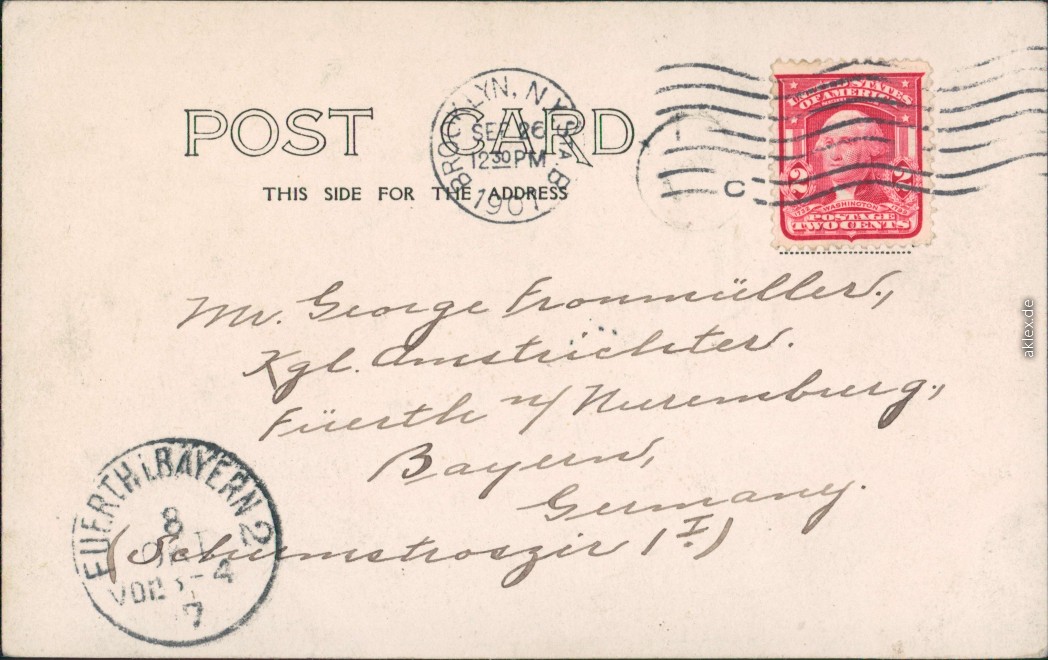 POST CARD
THIS SIDE FOR THE ADDRESS
BROOKLYN, N.Y.
SEP 26
12 30 PM
190
C
UNITED STATES
OF AMERICA
2 2
WASHINGTON
POSTAGE
TWO CENTS
Mr. George Fronmüller,
Kgl. Amstrichter.
Füerth n/ Nuremburg,
Bayern,
Germany.
FUERTH i. BAYERN 2
8
OKT
VOR 3-4
7
aklex.de